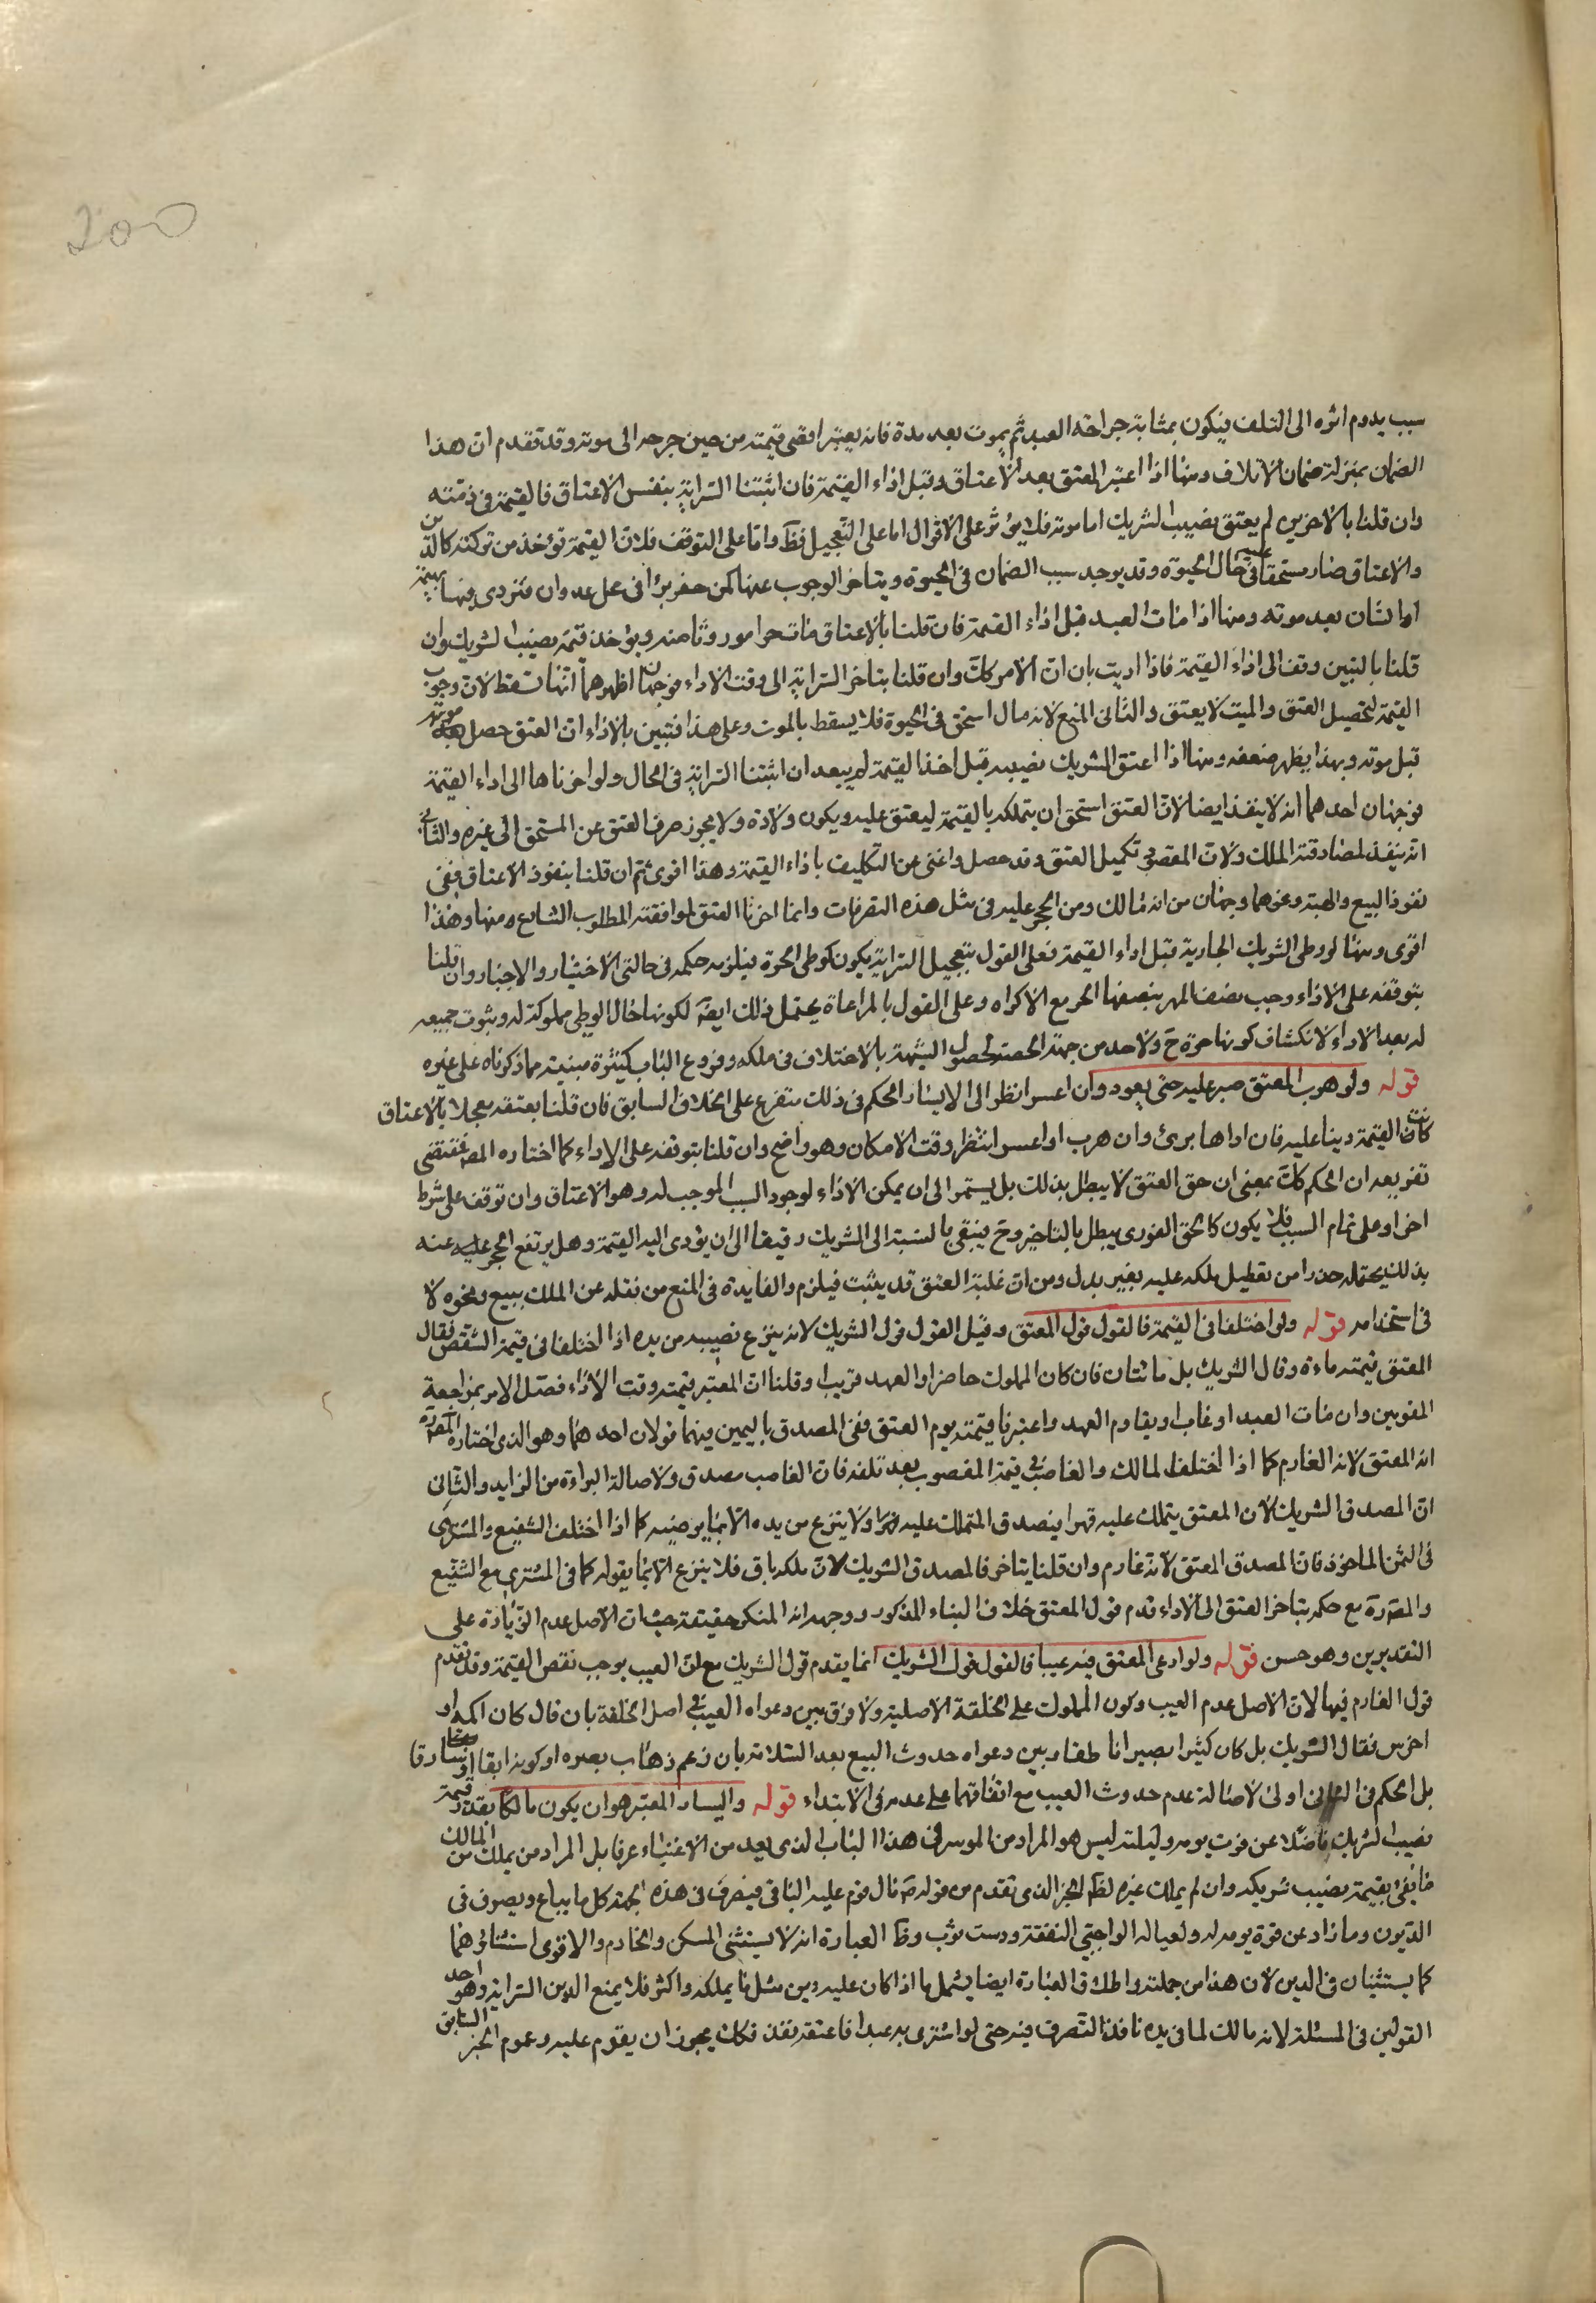 200
سبب يدوم اثره الى التلف فيكون بمثابة جراحة العبد ثم يموت بعد مدة فانه يعتبر اقصى قيمته من حين جرحه الى موته وقد تقدم ان هذا
الضمان بمنزلة ضمان الاتلاف ومنها اذا اعتبر المعتق بعد الاعتاق وقبل اداء القيمة فان اثبتنا السراية بنفس الاعتاق فالقيمة في ذمته
وان قلنا بالاخرين لم يعتق نصيب الشريك اما موته فلا يؤثر على الاقوال اما على التعجيل فظ واما على التوقف فلان القيمة تؤخذ من تركته كالدين
والاعتاق صار مستحقا عليه في حال الحيوة وقد يوجد سبب الضمان في الحيوة ويتاخر الوجوب عنها كمن حفر بئرا في محل عدوان فتردى فيها بهيمة
او انسان بعد موته ومنها اذا مات العبد قبل اداء القيمة فان قلنا بالاعتاق مات حرا موروثا منه ويؤخذ قيمة نصيب الشريك وان
قلنا بالتبين وقف الى اداء القيمة فاذا اديت بان ان الامر كان وان قلنا بتاخر السراية الى وقت الاداء فوجهان اظهرهما انها تسقط لان وجوب
القيمة لتحصيل العتق والميت لا يعتق والثاني المنع لانه مال استحق في الحيوة فلا يسقط بالموت وعلى هذا فتبين بالاداء ان العتق حصل موته
قبل موته وبهذا يظهر ضعفه ومنها اذا اعتق الشريك نصيبه قبل اخذ القيمة لم يبعد ان اثبتنا السراية في الحال ولو اخرناها الى اداء القيمة
فوجهان احدهما انه لا ينفذ ايضا لان المعتق استحق ان يتملكه بالقيمة ليعتق عليه ويكون ولاؤه ولا يجوز صرف العتق عن المستحق الى غيره والثاني
انه ينفذ لمصادفته الملك ولان المقصود تكميل العتق وقد حصل واغنى عن التكليف باداء القيمة وهذا اقوى ثم ان قلنا بنفوذ الاعتاق ففي
نفوذ البيع والهبة ونحوهما وجهان من انه مالك ومن الحجر عليه في مثل هذه التصرفات وانما اخرنا العتق لموافقته المطلوب الشارع ومنها وهذا
اقوى ومنها لو وطى الشريك الجارية قبل اداء القيمة فعلى القول بتعجيل السراية يكون كوطى الحرة فيلزمه حكمه في حالتي الاختيار والاجبار وان قلنا
بتوقفه على الاداء وجب نصف المهر بنصفها الحر مع الاكراه وعلى القول بالمراعاة يحتمل ذلك ايضا لكونها حال الوطى مملوكة له وثبوت جميعه
له بعد الاداء لانكشاف كونها حرة ح ولا حد من جهة الحصة لحصول الشبهة بالاختلاف في ملكه وفروع الباب كثيرة مبنية مما ذكرناه على غيره
قوله ولو هرب المعتق صبر عليه حتى يعود وان اعسر انظر الى الايسار الحكم في ذلك متفرع على الخلاف السابق فان قلنا بعتقه معجلا بالاعتاق
كانت القيمة دينا عليه فان اداها برئ وان هرب او اعسر انتظر وقت الامكان وهو واضح وان قلنا بتوقفه على الاداء كما اختاره المص فمقتضى
تفريعه ان الحكم كك بمعنى ان حق العتق لا يبطل بذلك بل يستمر الى ان يمكن الاداء لوجود السبب الموجب له وهو الاعتاق وان توقف على شرط
اخر او على تمام السبب فلا يكون كالحق الفوري يبطل بالتاخير وح يبقى بالنسبة الى الشريك رقيقا الى ان يؤدى اليه القيمة وهل يرتفع الحجر عليه عنه
بذلك يحتمله حذرا من تعطيل ملكه عليه بغير بدل ومن ان غلبة العتق قد يثبت فيلزم والفايدة في المنع من نقله عن الملك ببيع ونحوه لا
في استخدامه قوله ولو اختلفا في القيمة فالقول قول المعتق وقيل القول قول الشريك لانه ينتزع نصيبه من يده اذا اختلفا في قيمة الشقص فقال
المعتق قيمته ماءة وقال الشريك بل مائتان فان كان المملوك حاضرا والعهد قريبا وقلنا ان المعتبر قيمته وقت الاداء فصل الامر بمراجعة
المقومين وان مات العبد او غاب او تقادم العهد واعتبرنا قيمته يوم العتق ففي المصدق باليمين منهما قولان احدهما وهو الذي اختاره المصره
انه المعتق لانه الغارم كما اذا اختلف المالك والغاصب في قيمة المغصوب بعد تلفه فان الغاصب مصدق ولاصالة البراءة من الزايد والثاني
ان المصدق الشريك لان المعتق يتملك عليه قهرا فيصدق المتملك عليه ولا ينتزع من يده الا بما يرضيه كما اذا اختلف الشفيع والمشتري
في الثمن الماخوذ فان المصدق المعتق لانه غارم وان قلنا يتاخر فالمصدق الشريك لان ملكه باق فلا ينتزع الا بما يقوله كما في المشتري مع الشفيع
والمصره مع حكمه بتاخر العتق الى الاداء قدم قول المعتق خلاف البناء المذكور ووجهه انه المنكر حقيقة حيث ان الاصل عدم الزيادة على
التقديرين وهو حسن قوله ولو ادعى المعتق فيه عيبا فالقول قول الشريك انما يقدم قول الشريك مع ان العيب يوجب نقص القيمة وقد تقدم
قول الغارم فيها لان الاصل عدم العيب وكون المملوك على الخلقة الاصلية ولا فرق بين دعواه العيب في اصل الخلقة بان قال كان اكمه او
اخرس فقال الشريك بل كان كثيرا بصيرا ناطقا وبين دعواه حدوث البيع بعد السلامة بان زعم ذهاب بصره او كونه ابقا او سارقا
بل الحكم في الثاني اولى لاصالة عدم حدوث العيب مع اتفاقهما على عدمه في الابتداء قوله واليسار المعتبر هو ان يكون مالكا بقدر قيمة
نصيب الشريك فاضلا عن قوت يومه وليلته ليس هو المراد من الموسر في هذا الباب الذي يعد من الاغنياء عرفا بل المراد من يملك من المال
ما يفي بقيمة نصيب شريكه وان لم يملك غيره لظ الخبر الذي تقدم من قوله ص قال قوم عليه الباقي فيصرف في هذه الجهة كل ما يباع ويصرف في
الديون وما زاد عن قوة يومه له ولعياله الواجبي النفقة ودست ثوب وظ العبارة انه لا يستثنى المسكن والخادم والاقوى استثناؤهما
كما يستثنيان في الدين لان هذا من جملته واطلاق العبارة ايضا يشمل ما اذا كان عليه دين مثل ما يملكه واكثر فلا يمنع الدين السراية وهو احد
القولين في المسئلة لانه مالك لما في يده نافذ التصرف فيه حتى لو اشترى به عبدا فاعتقه نفذ فكك يجوز ان يقوم عليه وعموم الخبر السابق